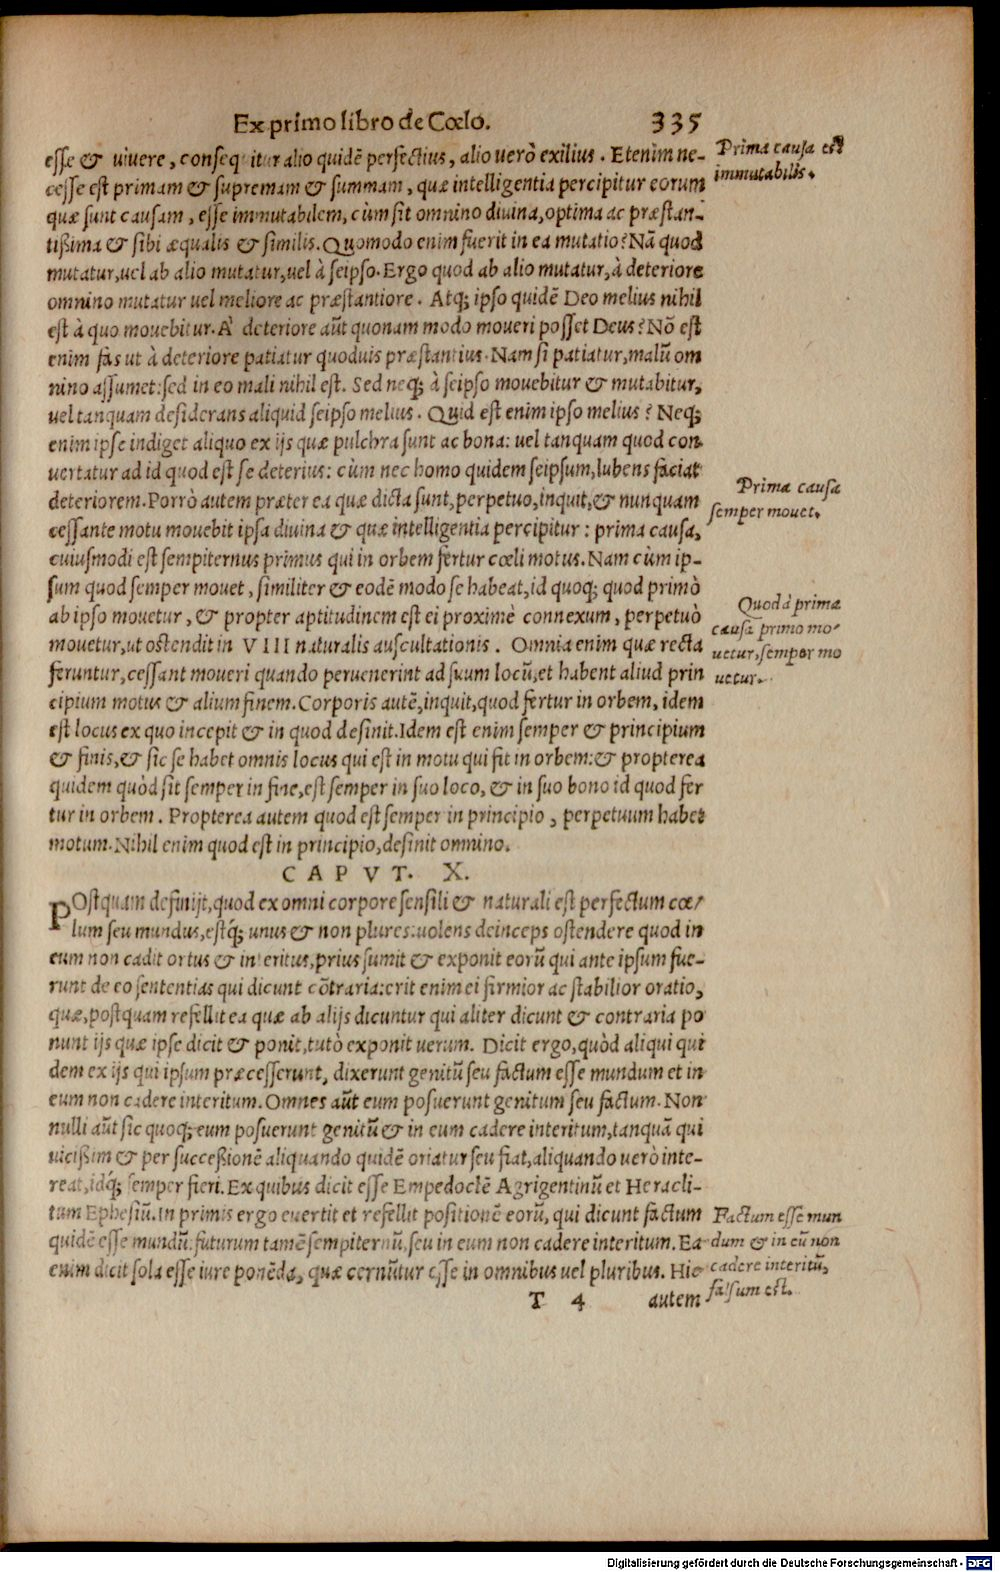 Ex primo libro de Cœlo. 335
esse & uiuere, consequitur alio quidē perfectius, alio uerò exilius. Etenim ne-
cesse est primam & supremam & summam, quæ intelligentia percipitur eorum
quæ sunt causam, esse immutabilem, cùm sit omnino diuina, optima ac præstan-
tißima & sibi æqualis & similis. Quomodo enim fuerit in ea mutatio? Nā quod
mutatur, uel ab alio mutatur, uel à seipso. Ergo quod ab alio mutatur, à deteriore
omnino mutatur uel meliore ac præstantiore. Atq; ipso quidē Deo melius nihil
est à quo mouebitur. A' deteriore aūt quonam modo moueri posset Deus? Nō est
enim fas ut à deteriore patiatur quoduis præstantius. Nam si patiatur, malū om
nino assumet: sed in eo mali nihil est. Sed neq; à seipso mouebitur & mutabitur,
uel tanquam desiderans aliquid seipso melius. Quid est enim ipso melius? Neq;
enim ipse indiget aliquo ex ijs quæ pulchra sunt ac bona: uel tanquam quod con
uertatur ad id quod est se deterius: cùm nec homo quidem seipsum, lubens faciat
deteriorem. Porrò autem præter ea quæ dicta sunt, perpetuo, inquit, & nunquam
cessante motu mouebit ipsa diuina & quæ intelligentia percipitur: prima causa,
cuiusmodi est sempiternus primus qui in orbem fertur cœli motus. Nam cùm ip-
sum quod semper mouet, similiter & eodē modo se habeat, id quoq; quod primò
ab ipso mouetur, & propter aptitudinem est ei proximè connexum, perpetuò
mouetur, ut ostendit in VIII naturalis auscultationis. Omnia enim quæ recta
feruntur, cessant moueri quando peruenerint ad suum locū, et habent aliud prin
cipium motus & alium finem. Corporis autē, inquit, quod fertur in orbem, idem
est locus ex quo incepit & in quod desinit. Idem est enim semper & principium
& finis, & sic se habet omnis locus qui est in motu qui fit in orbem: & propterea
quidem quòd sit semper in fine, est semper in suo loco, & in suo bono id quod fer
tur in orbem. Propterea autem quod est semper in principio, perpetuum habet
motum. Nihil enim quod est in principio, desinit omnino.
CAPVT. X.
POstquam definijt, quod ex omni corpore sensili & naturali est perfectum cœ-
lum seu mundus, estq́; unus & non plures: uolens deinceps ostendere quod in
eum non cadit ortus & interitus, prius sumit & exponit eorū qui ante ipsum fue-
runt de eo sententias qui dicunt cōtraria: erit enim ei firmior ac stabilior oratio,
quæ, postquam refellit ea quæ ab alijs dicuntur qui aliter dicunt & contraria po
nunt ijs quæ ipse dicit & ponit, tutò exponit uerum. Dicit ergo, quòd aliqui qui
dem ex ijs qui ipsum præcesserunt, dixerunt genitū seu factum esse mundum et in
eum non cadere interitum. Omnes aūt eum posuerunt genitum seu factum. Non
nulli aūt sic quoq; eum posuerunt genitū & in eum cadere interitum, tanquā qui
uicißim & per successionē aliquando quidē oriatur seu fiat, aliquando uerò inte-
reat, idq́; semper fieri. Ex quibus dicit esse Empedoclē Agrigentinū et Heracli-
tum Ephesiū. In primis ergo euertit et refellit positionē eorū, qui dicunt factum
quidē esse mundū: futurum tamē sempiternū, seu in eum non cadere interitum. Ea
enim dicit sola esse iure ponēda, quæ cernūtur esse in omnibus uel pluribus. Hic
T 4 autem
Prima causa est
immutabilis.
Prima causa
semper mouet.
Quod à prima
causa primo mo-
uetur, semper mo
uetur.
Factum esse mun
dum & in eū non
cadere interitū,
falsum est.
Digitalisierung gefördert durch die Deutsche Forschungsgemeinschaft - DFG